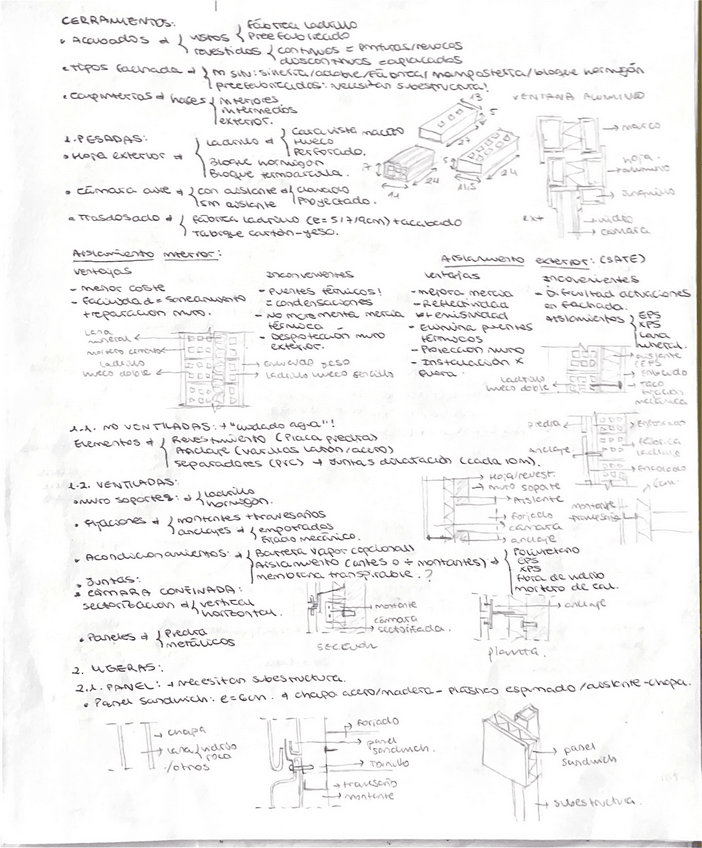 CERRAMIENTOS:
• Acabados → { vistos { Fábrica ladrillo
Prefabricado
revestidos { continuos = pinturas/revocos
discontinuos = aplacados
• Tipos fachada → { in situ: sillería/adobe/fábrica/mampostería/bloque hormigón
prefabricados: necesitan subestructura!
• Carpinterías → haces { interiores
intermedios
exterior.
13
5
27
VENTANA ALUMINIO
→ marco
hoja
aluminio
→ junquillo
→ vidrio
→ cámara
ext
1. PESADAS:
• Hoja exterior → { ladrillo → { Cara vista macizo
Hueco
Perforado.
Bloque hormigón
Bloque termoarcilla.
7
11
24
5
11,5
24
• Cámara aire → { con aislante → { clavado
Proyectado.
sin aislante
• Trasdosado → { Fábrica ladrillo (e = 5/7/9cm) + acabado
Tabique cartón-yeso.
Aislamiento interior:
ventajas
- menor coste
- Facilidad = saneamiento
+ reparación muro.
Inconvenientes
- Puentes térmicos!
= condensaciones
- No incrementa inercia
térmica
- Desprotección muro
exterior.
lana
mineral
mortero cemento
ladrillo
hueco doble
→ enlucido yeso
→ ladrillo hueco sencillo
Aislamiento exterior: (SATE)
ventajas
- mejora inercia
- Reflectividad
+ emisividad
- Elimina puentes
térmicos
- Protección muro
- Instalación x
fuera.
Inconvenientes
- Dificultad actuaciones
en fachada.
Aislamientos { EPS
XPS
Lana
mineral.
→ aislante
(EPS
→ enlucido
→ Taco
fijación
mecánica
ladrillo
hueco doble
1.1. NO VENTILADAS: → "cuidado agua"!
Elementos → { Revestimiento (Placa piedra)
Anclaje (varillas latón/acero)
separadores (PVC) → juntas dilatación (cada 10m).
piedra
anclaje
→ Enfoscado
→ Fábrica
ladrillo
→ Encolado
1.2. VENTILADAS:
• muro soportes: → { ladrillo
hormigón.
• Fijaciones → { montantes + travesaños
anclajes → { empotrados
Fijado mecánico.
→ Hoja/revest.
→ muro soporte
→ Aislante
→ forjado
→ cámara
→ anclaje
montante
travesaño
• Acondicionamientos: → { Barrera vapor (opcional)
Aislamiento (antes o ÷ montantes) → { Poliuretano
EPS
XPS
fibra de vidrio
mortero de cal.
membrana transpirable. ?
• Juntas:
• CÁMARA CONFINADA:
sectorización → { vertical
horizontal.
→ montante
cámara
sectorizada.
SECCIÓN
→ anclaje
planta.
• Paneles → { Piedra
metálicos
2. LIGERAS:
2.1. PANEL: → necesitan subestructura.
• Panel Sandwich: e = 6cm. → chapa acero/madera - plástico espumado/aislante - chapa.
→ chapa
→ lana { vidrio
roca
/otros
→ forjado
→ panel
sandwich.
→ Tornillo
→ travesaño
→ montante
→ panel
sandwich
→ subestructura.